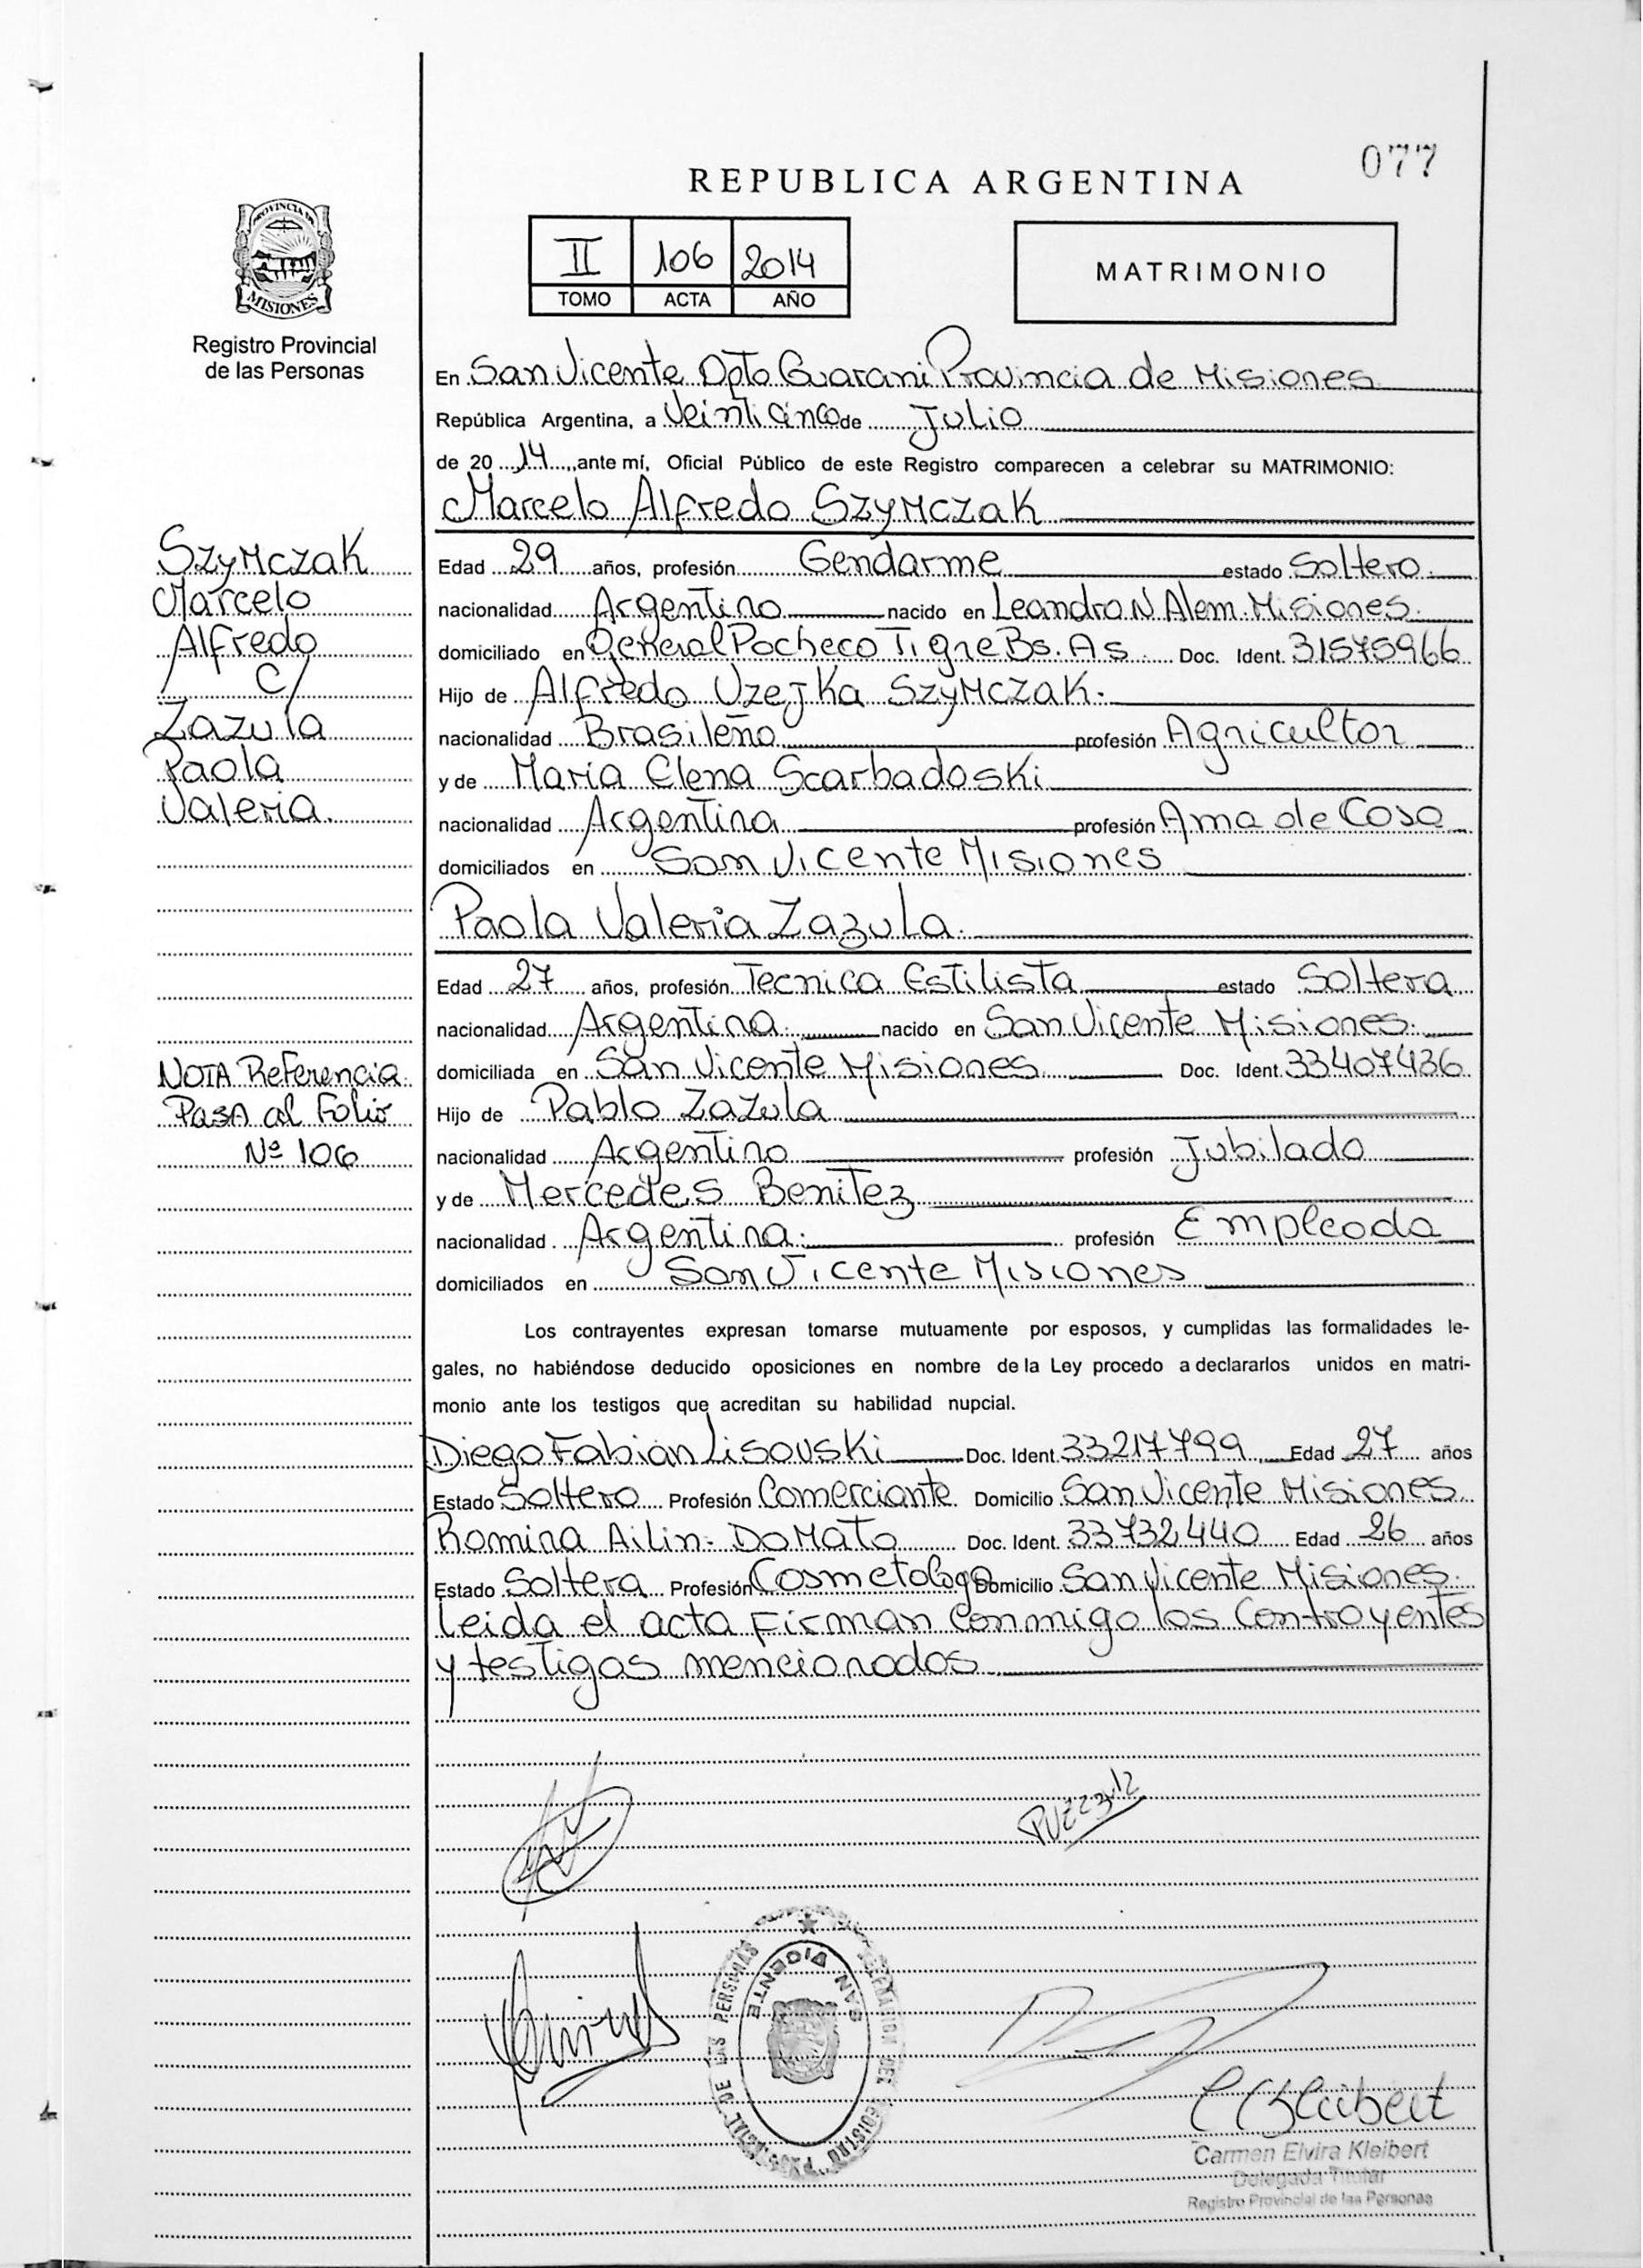 077
REPUBLICA ARGENTINA
PROVINCIA DE
MISIONES
Registro Provincial
de las Personas
II 106 2014
TOMO ACTA AÑO
MATRIMONIO
En San Vicente Dpto Guarani Provincia de Misiones
República Argentina, a Veinticinco de Julio
de 20 14, ante mí, Oficial Público de este Registro comparecen a celebrar su MATRIMONIO:
Marcelo Alfredo SzyMczaK
Edad 29 años, profesión Gendarme estado Soltero.
nacionalidad Argentino nacido en Leandro N. Alem. Misiones.
domiciliado en General Pacheco Tigre Bs. As. Doc. Ident. 31575966
Hijo de Alfredo UzejKa SzyMczaK.
nacionalidad Brasileño profesión Agricultor
y de Maria Elena Scarbadoski
nacionalidad Argentina profesión Ama de Casa
domiciliados en San Vicente Misiones
Paola Valeria Zazula.
Edad 27 años, profesión Tecnica Estilista estado Soltera
nacionalidad Argentina. nacido en San Vicente Misiones.
domiciliada en San Vicente Misiones Doc. Ident. 33407436
Hijo de Pablo Zazula
nacionalidad Argentino profesión Jubilado
y de Mercedes Benitez
nacionalidad Argentina. profesión Empleada
domiciliados en San Vicente Misiones
Los contrayentes expresan tomarse mutuamente por esposos, y cumplidas las formalidades le-
gales, no habiéndose deducido oposiciones en nombre de la Ley procedo a declararlos unidos en matri-
monio ante los testigos que acreditan su habilidad nupcial.
Diego Fabián Lisouski Doc. Ident. 33217799 Edad 27 años
Estado Soltero Profesión Comerciante. Domicilio San Vicente Misiones
Romina Ailin. DoMato Doc. Ident. 33732440 Edad 26 años
Estado Soltera Profesión Cosmetologa Domicilio San Vicente Misiones.
Leida el acta Firman Conmigo los Contrayentes
y testigos mencionados
SzyMczaK
Marcelo
Alfredo
C/
Zazula
Paola
Valeria.
NOTA Referencia.
PASA al Folio
Nº 106
SAN VICENTE
C E Kleibert
Carmen Elvira Kleibert
Delegada Titular
Registro Provincial de las Personas